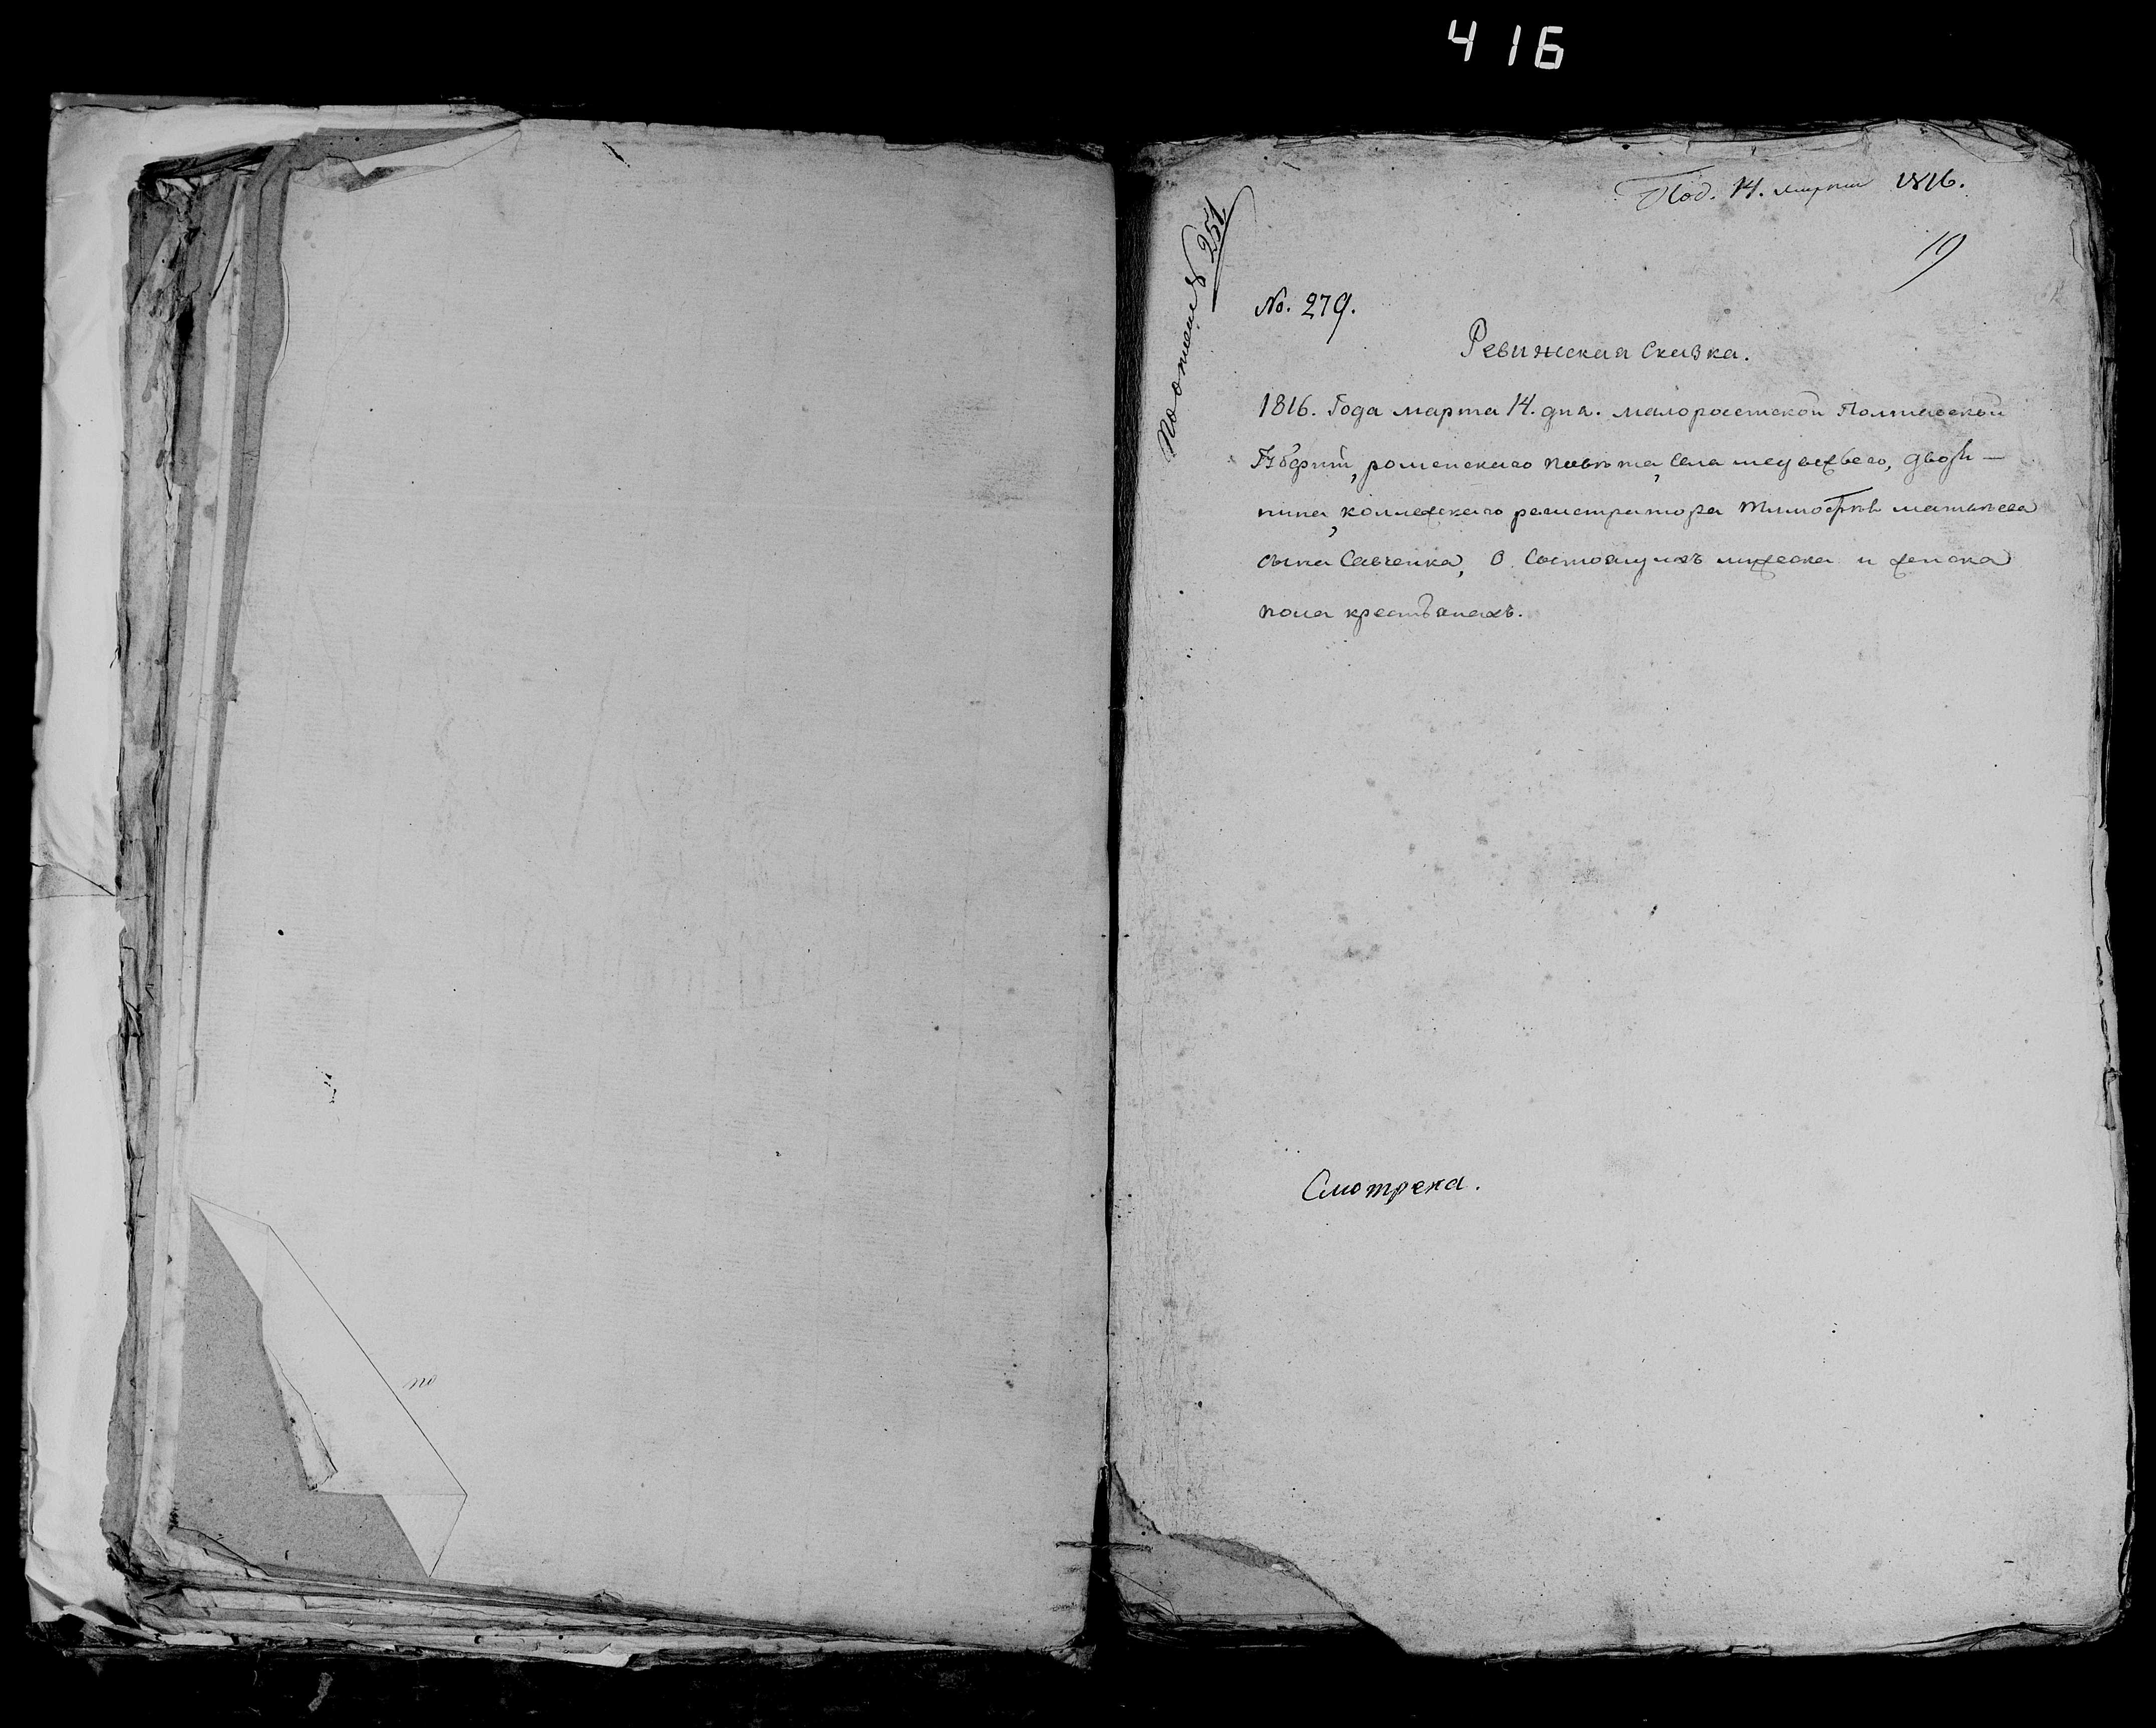 416
Под. 14. марта 1816.
19
по отом 251
No. 279.
Ревижская Сказка.
1816. Года марта 14. дня. малоросииской Полтавской
Губерніи, роменскаго повѣта, села медвежьего, дворя—
нина, коллежскаго регистратора тимофѣя матвѣева
сына Савченка, о состоящихъ мужеска и женска
пола крестьянахъ.
Смотрена.
по